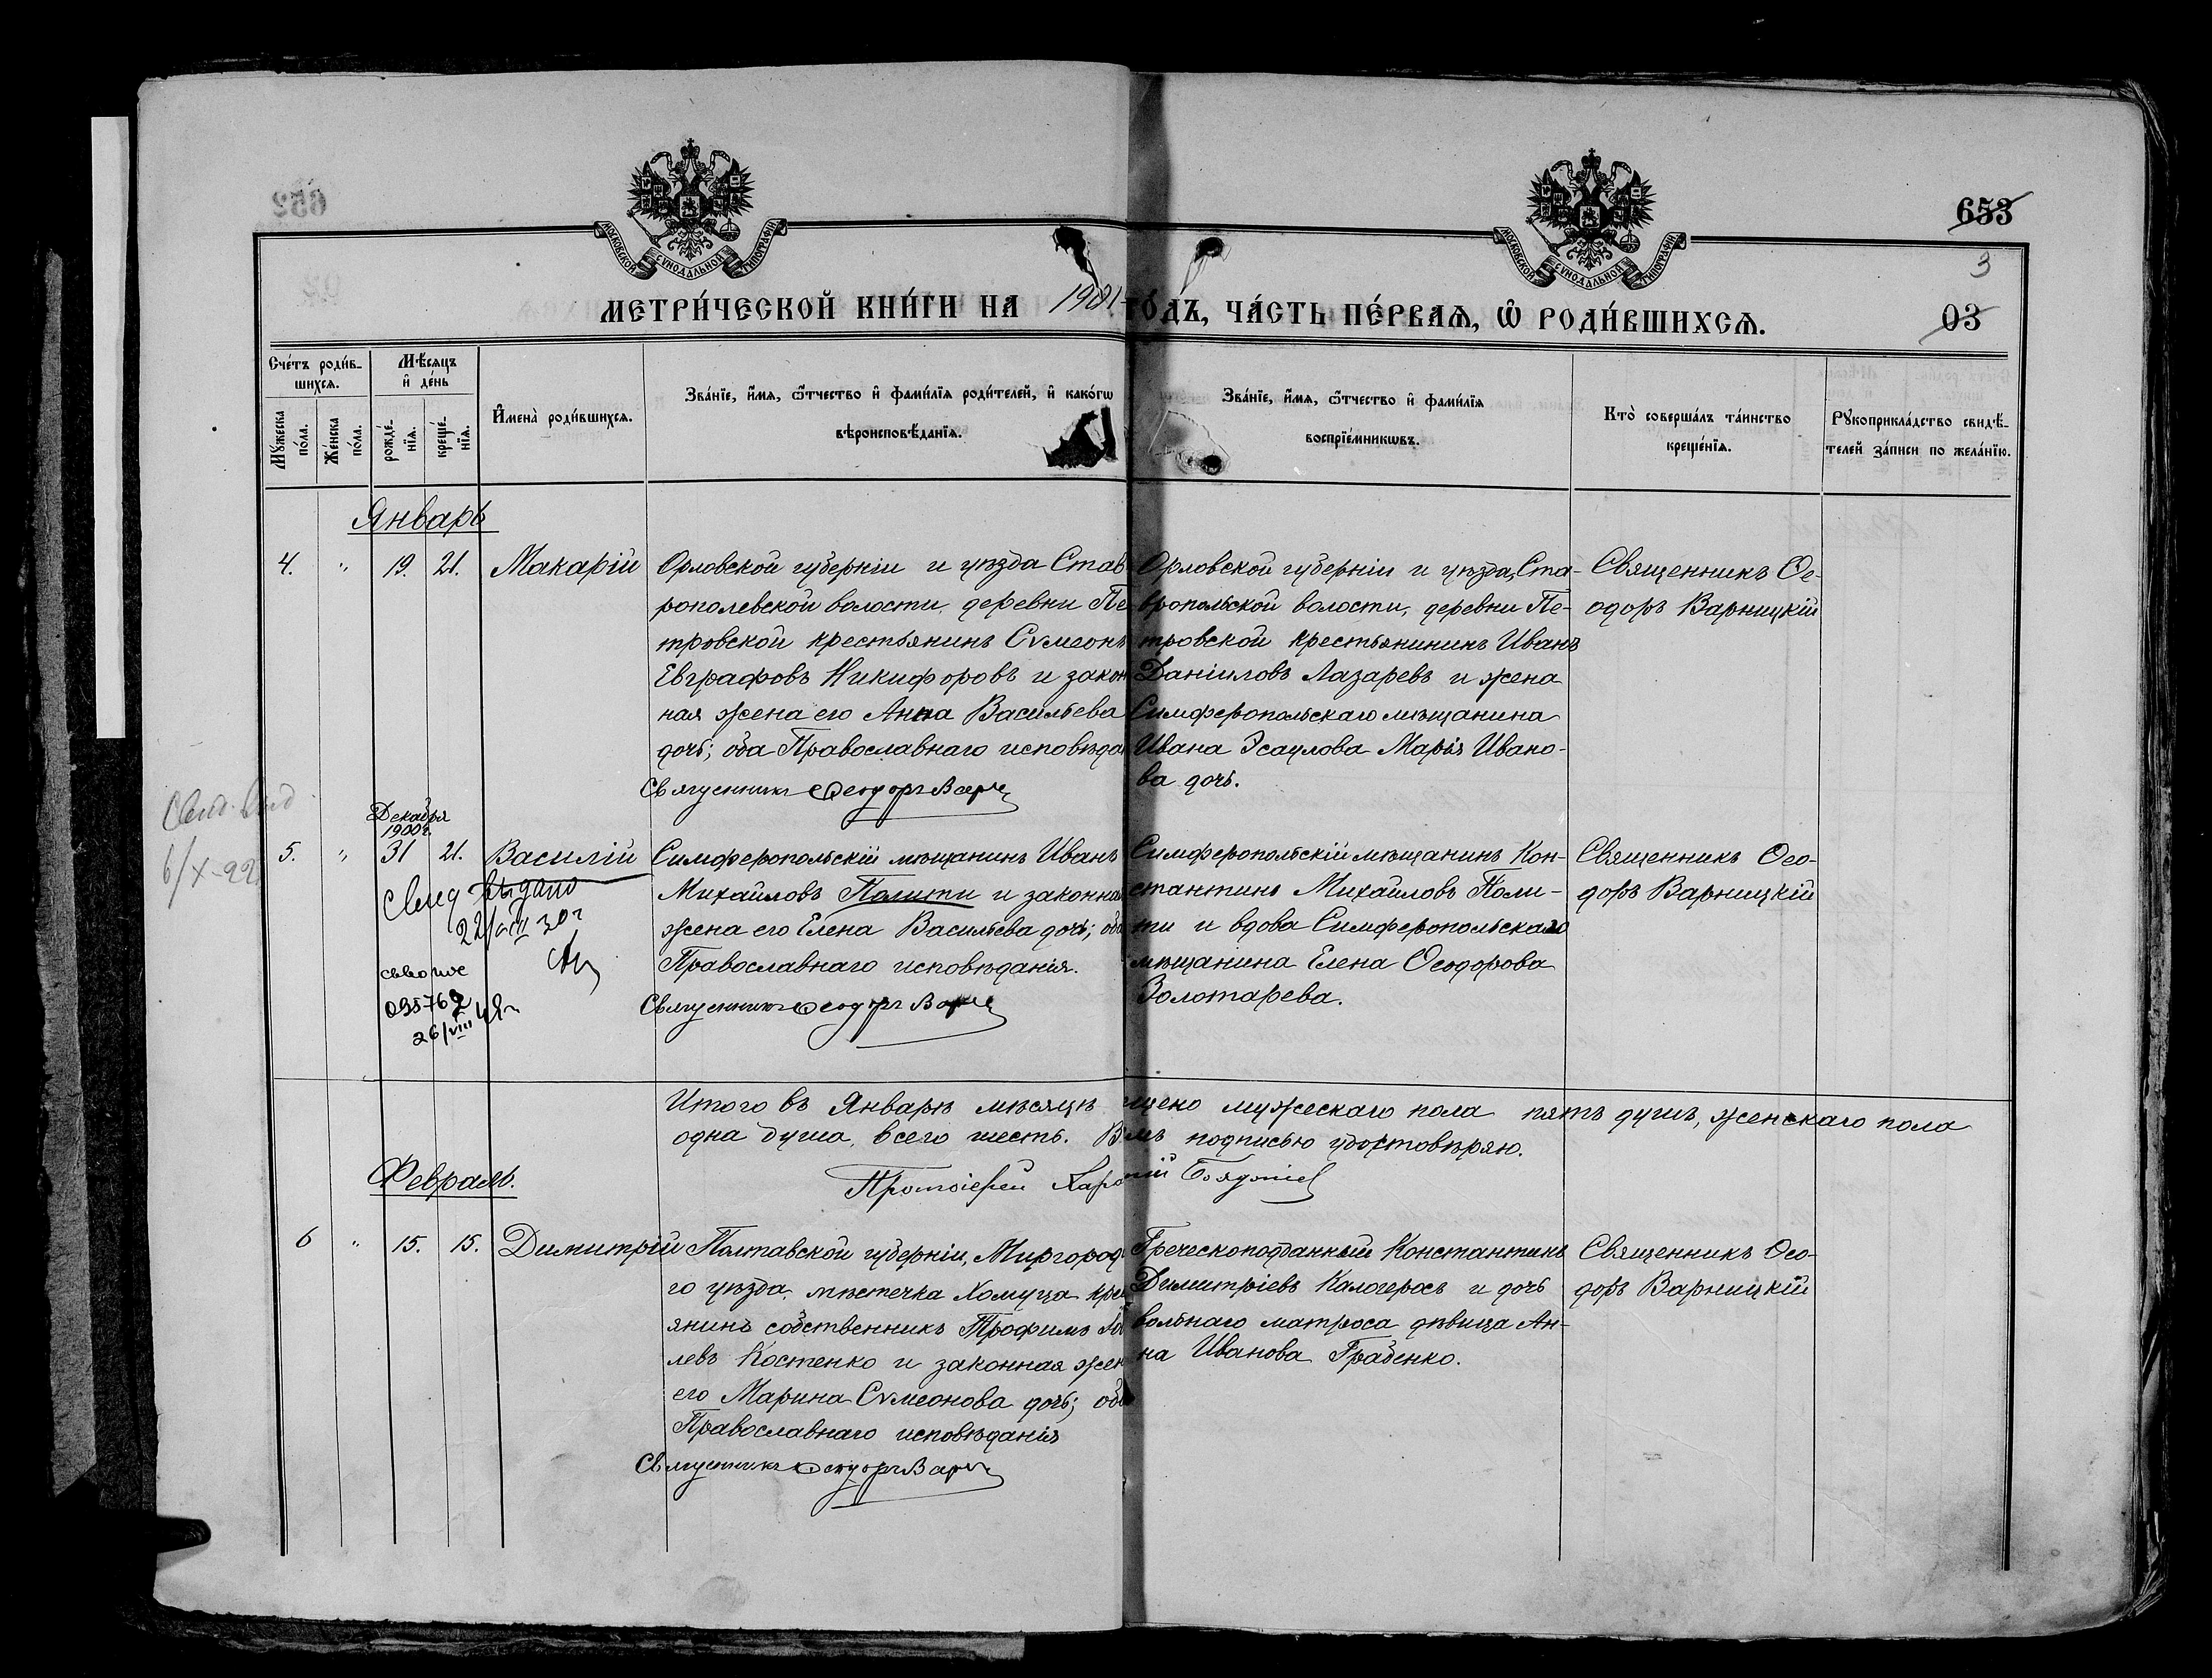 653
3
03
МОСКОВСКОЙ СѴНОДАЛЬНОЙ ТИПОГРАФІИ
МОСКОВСКОЙ СѴНОДАЛЬНОЙ ТИПОГРАФІИ
МЕТРИ́ЧЕСКОЙ КНИ́ГИ НА 1901 ГО́ДЪ, ЧА́СТЬ ПЕ́РВАѦ, Ѡ҆ РОДИ́ВШИХСѦ.
Сче́тъ роди́в-
шихсѧ.
Мꙋ́жеска по́ла.
Же́нска по́ла.
Мѣ́сѧцъ
и҆ де́нь
рожде́-
нїѧ.
креще́-
нїѧ.
И҆мена̀ роди́вшихсѧ.
Зва́нїе, и҆́мѧ, ѻ҆́тчество и҆ фами́лїѧ роди́телей, и҆ како́гѡ
вѣроисповѣ́данїѧ.
Зва́нїе, и҆́мѧ, ѻ҆́тчество и҆ фами́лїѧ
воспрїе́мникѡвъ.
Кто̀ соверша́лъ та́инство
креще́нїѧ.
Рꙋкоприкла́дство свидѣ́-
телей за́писи по жела́нїю.
Январь
4. " 19. 21. Макарій
Орловской губерніи и уѣзда Став
рополевской волости, деревни Пе
тровской крестьянинъ Сѵмеонъ
Евграфовъ Никифоровъ и закон
ная жена его Анна Васильева
дочь; оба Православнаго исповѣда
Священникъ Ѳеодоръ Варн
Орловской губерніи и уѣзда, Ста-
вропольской волости, деревни Пе-
тровской крестьянининъ Иванъ
Даніиловъ Лазаревъ и жена
Симферопольскаго мѣщанина
Ивана Эсаулова Марія Ивано-
ва дочь.
Священникъ Ѳе-
одоръ Варницкій
Декабря
1900 г.
5. " 31 21. Василій
6/X-22
Свид выдано
22/VIII 30 г
второе
095762
26/VIII 49 г
Симферопольскій мѣщанинъ Иванъ
Михайловъ Полити и законная
жена его Елена Васильева дочь; оба
Православнаго исповѣданія.
Священникъ Ѳеодоръ Варн
Симферопольскій мѣщанинъ Кон-
стантинъ Михайловъ Поли-
ти и вдова Симферопольскаго
мѣщанина Елена Ѳеодорова
Золотарева.
Священникъ Ѳео-
доръ Варницкій
Итого въ Январѣ мѣсяцѣ щено мужескаго пола пять душъ, женскаго пола
одна душа, всего шесть. В мъ подписью удостовѣряю.
Протоіерей
Февраль.
6 " 15. 15. Димитрій
Полтавской губерніи, Миргород
го уѣзда, мѣстечка Хомуца кре
янинъ собственникъ Трофимъ
левъ Костенко и законная жен
его Марина Сѵмеонова дочь; оба
Православнаго исповѣданія
Священникъ Ѳеодоръ Варн
Греческоподданный Константинъ
Димитріевъ Калогеросъ и дочь
вольнаго матроса дѣвица Ан-
на Иванова Грабенко.
Священникъ Ѳео-
доръ Варницкій